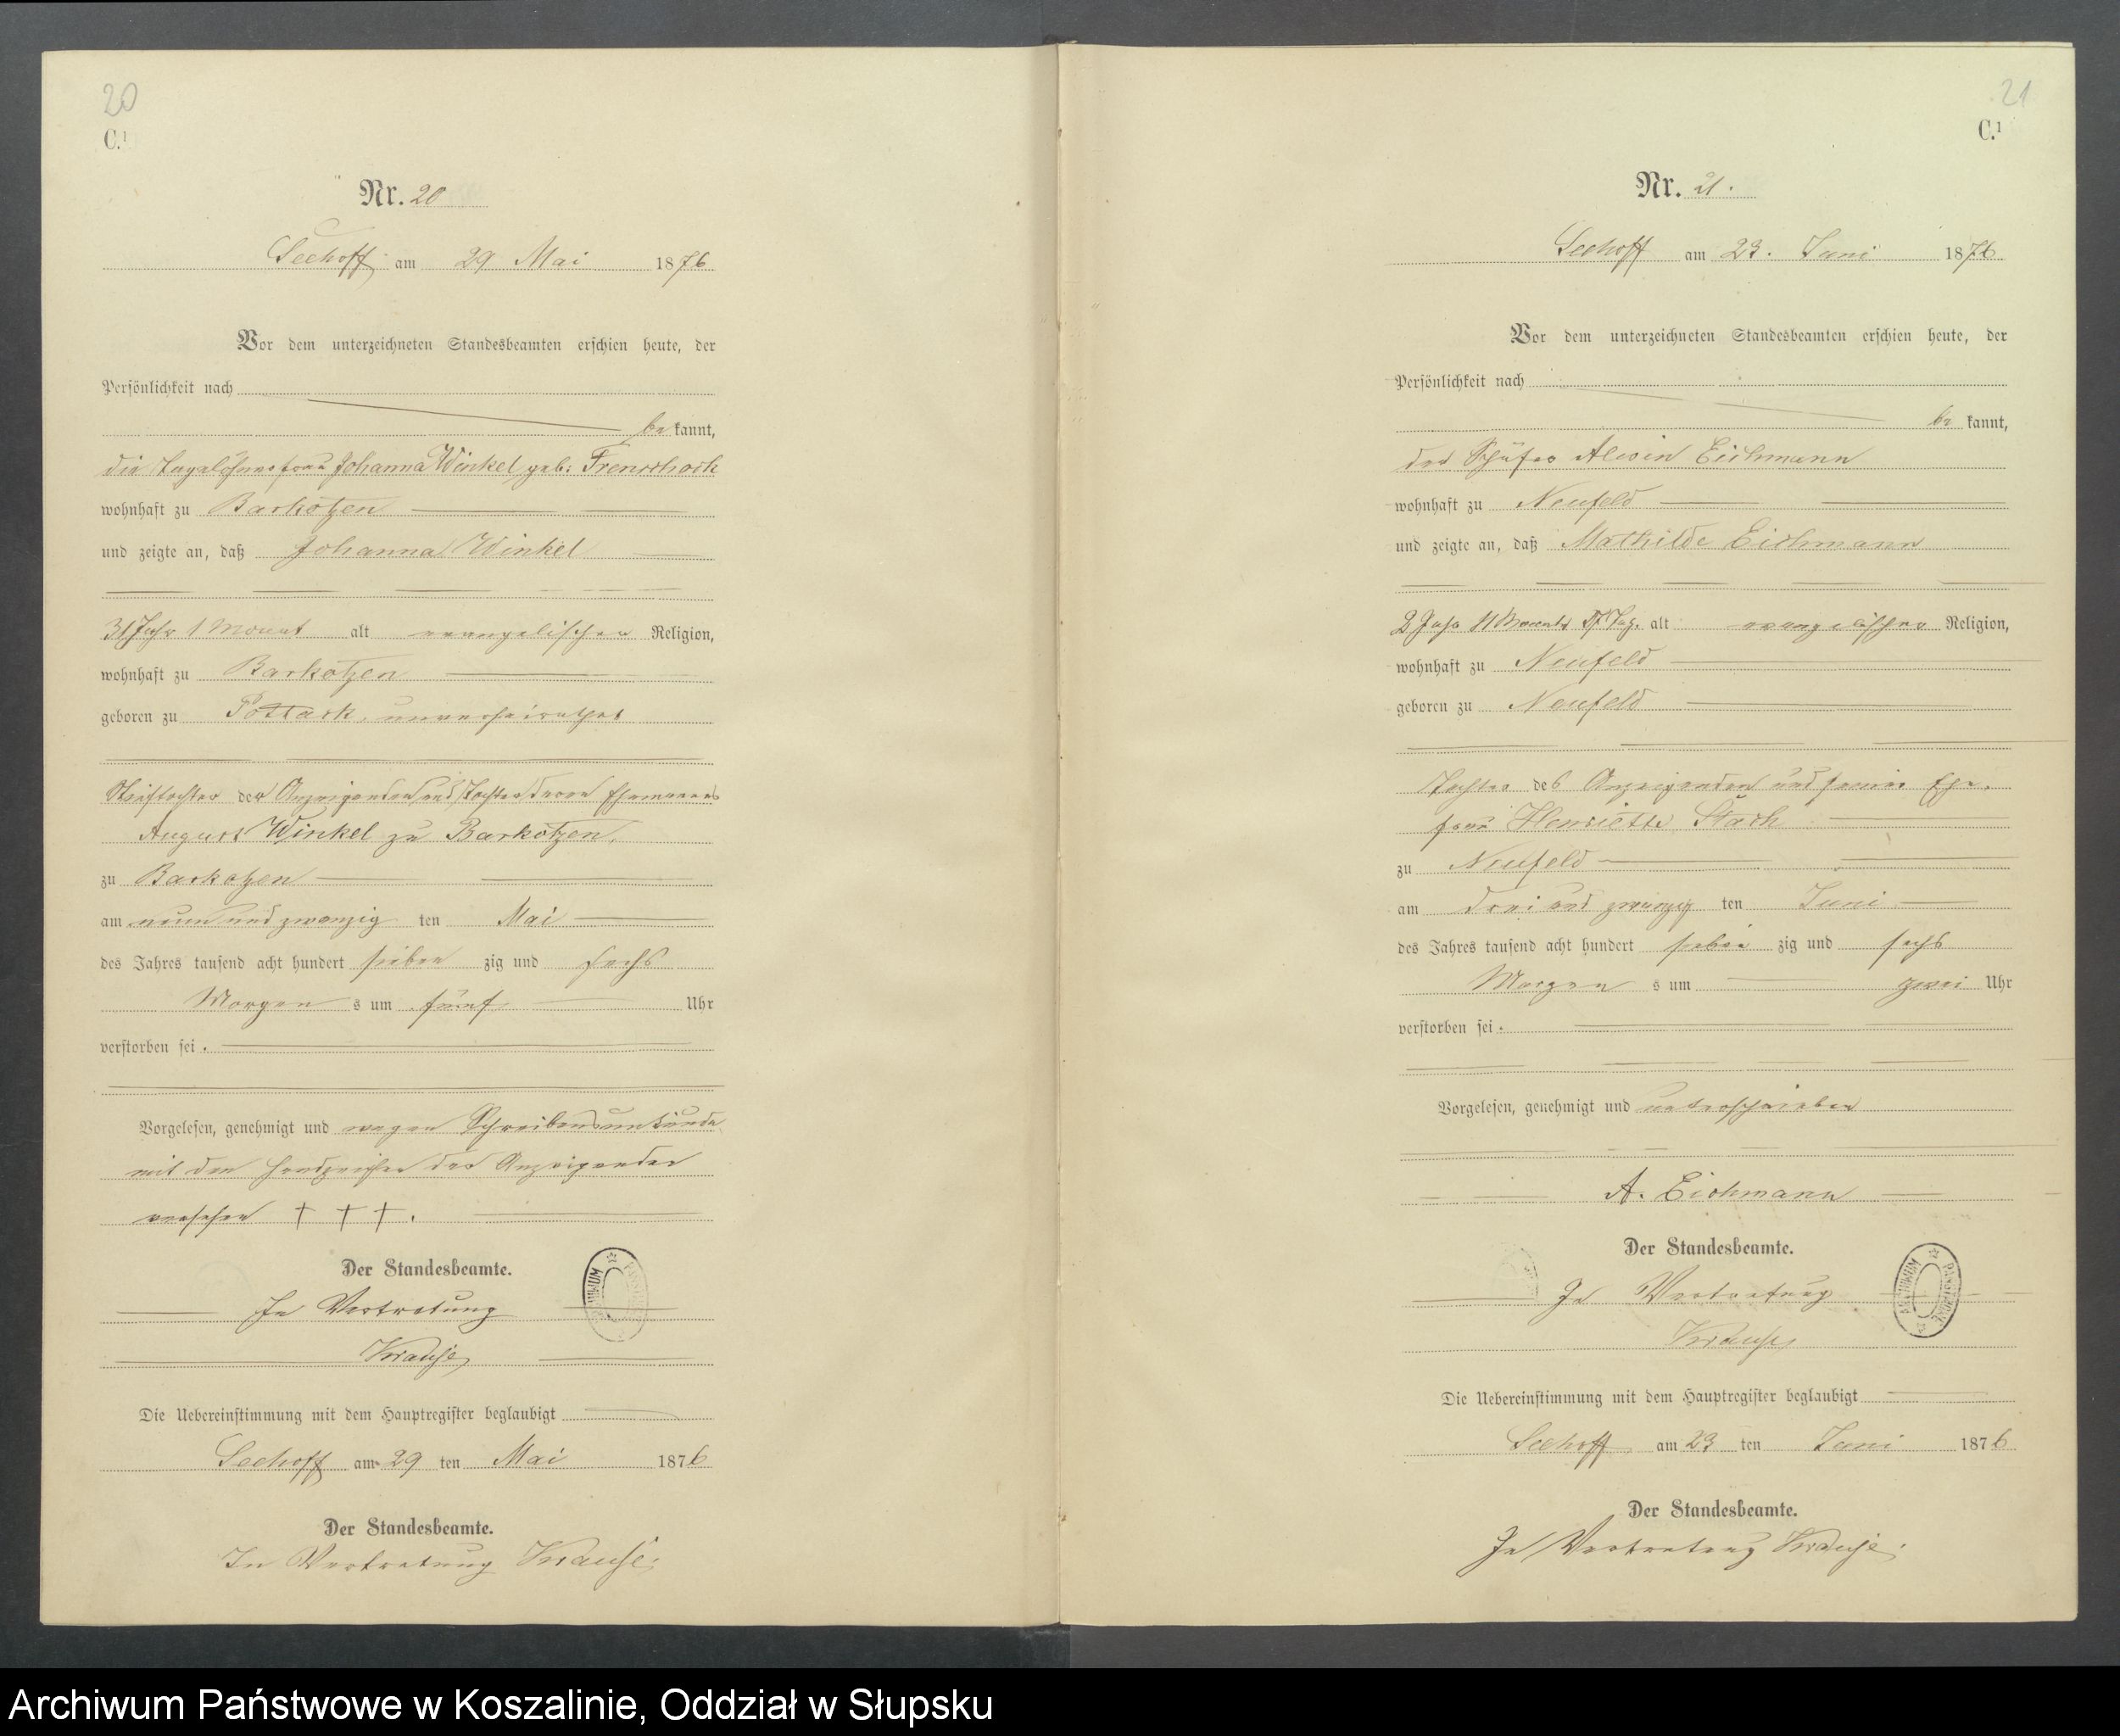 20
C.¹
Nr. 20
Seehoff am 29 Mai 1876
Vor dem unterzeichneten Standesbeamten erschien heute, der
Persönlichkeit nach
be kannt,
die Tagelöhnerfrau Johanna Winkel geb:
wohnhaft zu Barkotzen
und zeigte an, daß Johanna Winkel
31 Jahr 1 Monat alt evangelischer Religion,
wohnhaft zu Barkotzen
geboren zu Pottack, unverheirathet
Stieftochter der Anzeigenden und Tochter deren Ehemannes
August Winkel zu Barkotzen,
zu Barkotzen
am neun und zwanzig ten Mai
des Jahres tausend acht hundert sieben zig und sechs
Morgen s um fünf Uhr
verstorben sei.
Vorgelesen, genehmigt und wegen Schreibensunkunde
mit den Handzeichen der Anzeigenden
versehen † † †.
Der Standesbeamte.
In Vertretung
Krause
Die Uebereinstimmung mit dem Hauptregister beglaubigt
Seehoff am 29 ten Mai 1876
Der Standesbeamte.
In Vertretung Krause.
21
C.¹
Nr. 21.
Seehoff am 23. Juni 1876
Vor dem unterzeichneten Standesbeamten erschien heute, der
Persönlichkeit nach
be kannt,
der Schäfer Alwin Eichmann
wohnhaft zu Neufeld
und zeigte an, daß Mathilde Eichmann
2 Jahr 11 Monate Tag. alt evangelischer Religion,
wohnhaft zu Neufeld
geboren zu Neufeld
Tochter des Anzeigenden und seiner Ehe-
frau Henriette Stach
zu Neufeld
am drei und zwanzig ten Juni
des Jahres tausend acht hundert sieben zig und sechs
Morgen s um zwei Uhr
verstorben sei.
Vorgelesen, genehmigt und unterschrieben
A. Eichmann
Der Standesbeamte.
In Vertretung
Krause
Die Uebereinstimmung mit dem Hauptregister beglaubigt
Seehoff am 23 ten Juni 1876
Der Standesbeamte.
In Vertretung Krause.
ARCHIWUM PAŃSTWOWE
Archiwum Państwowe w Koszalinie, Oddział w Słupsku